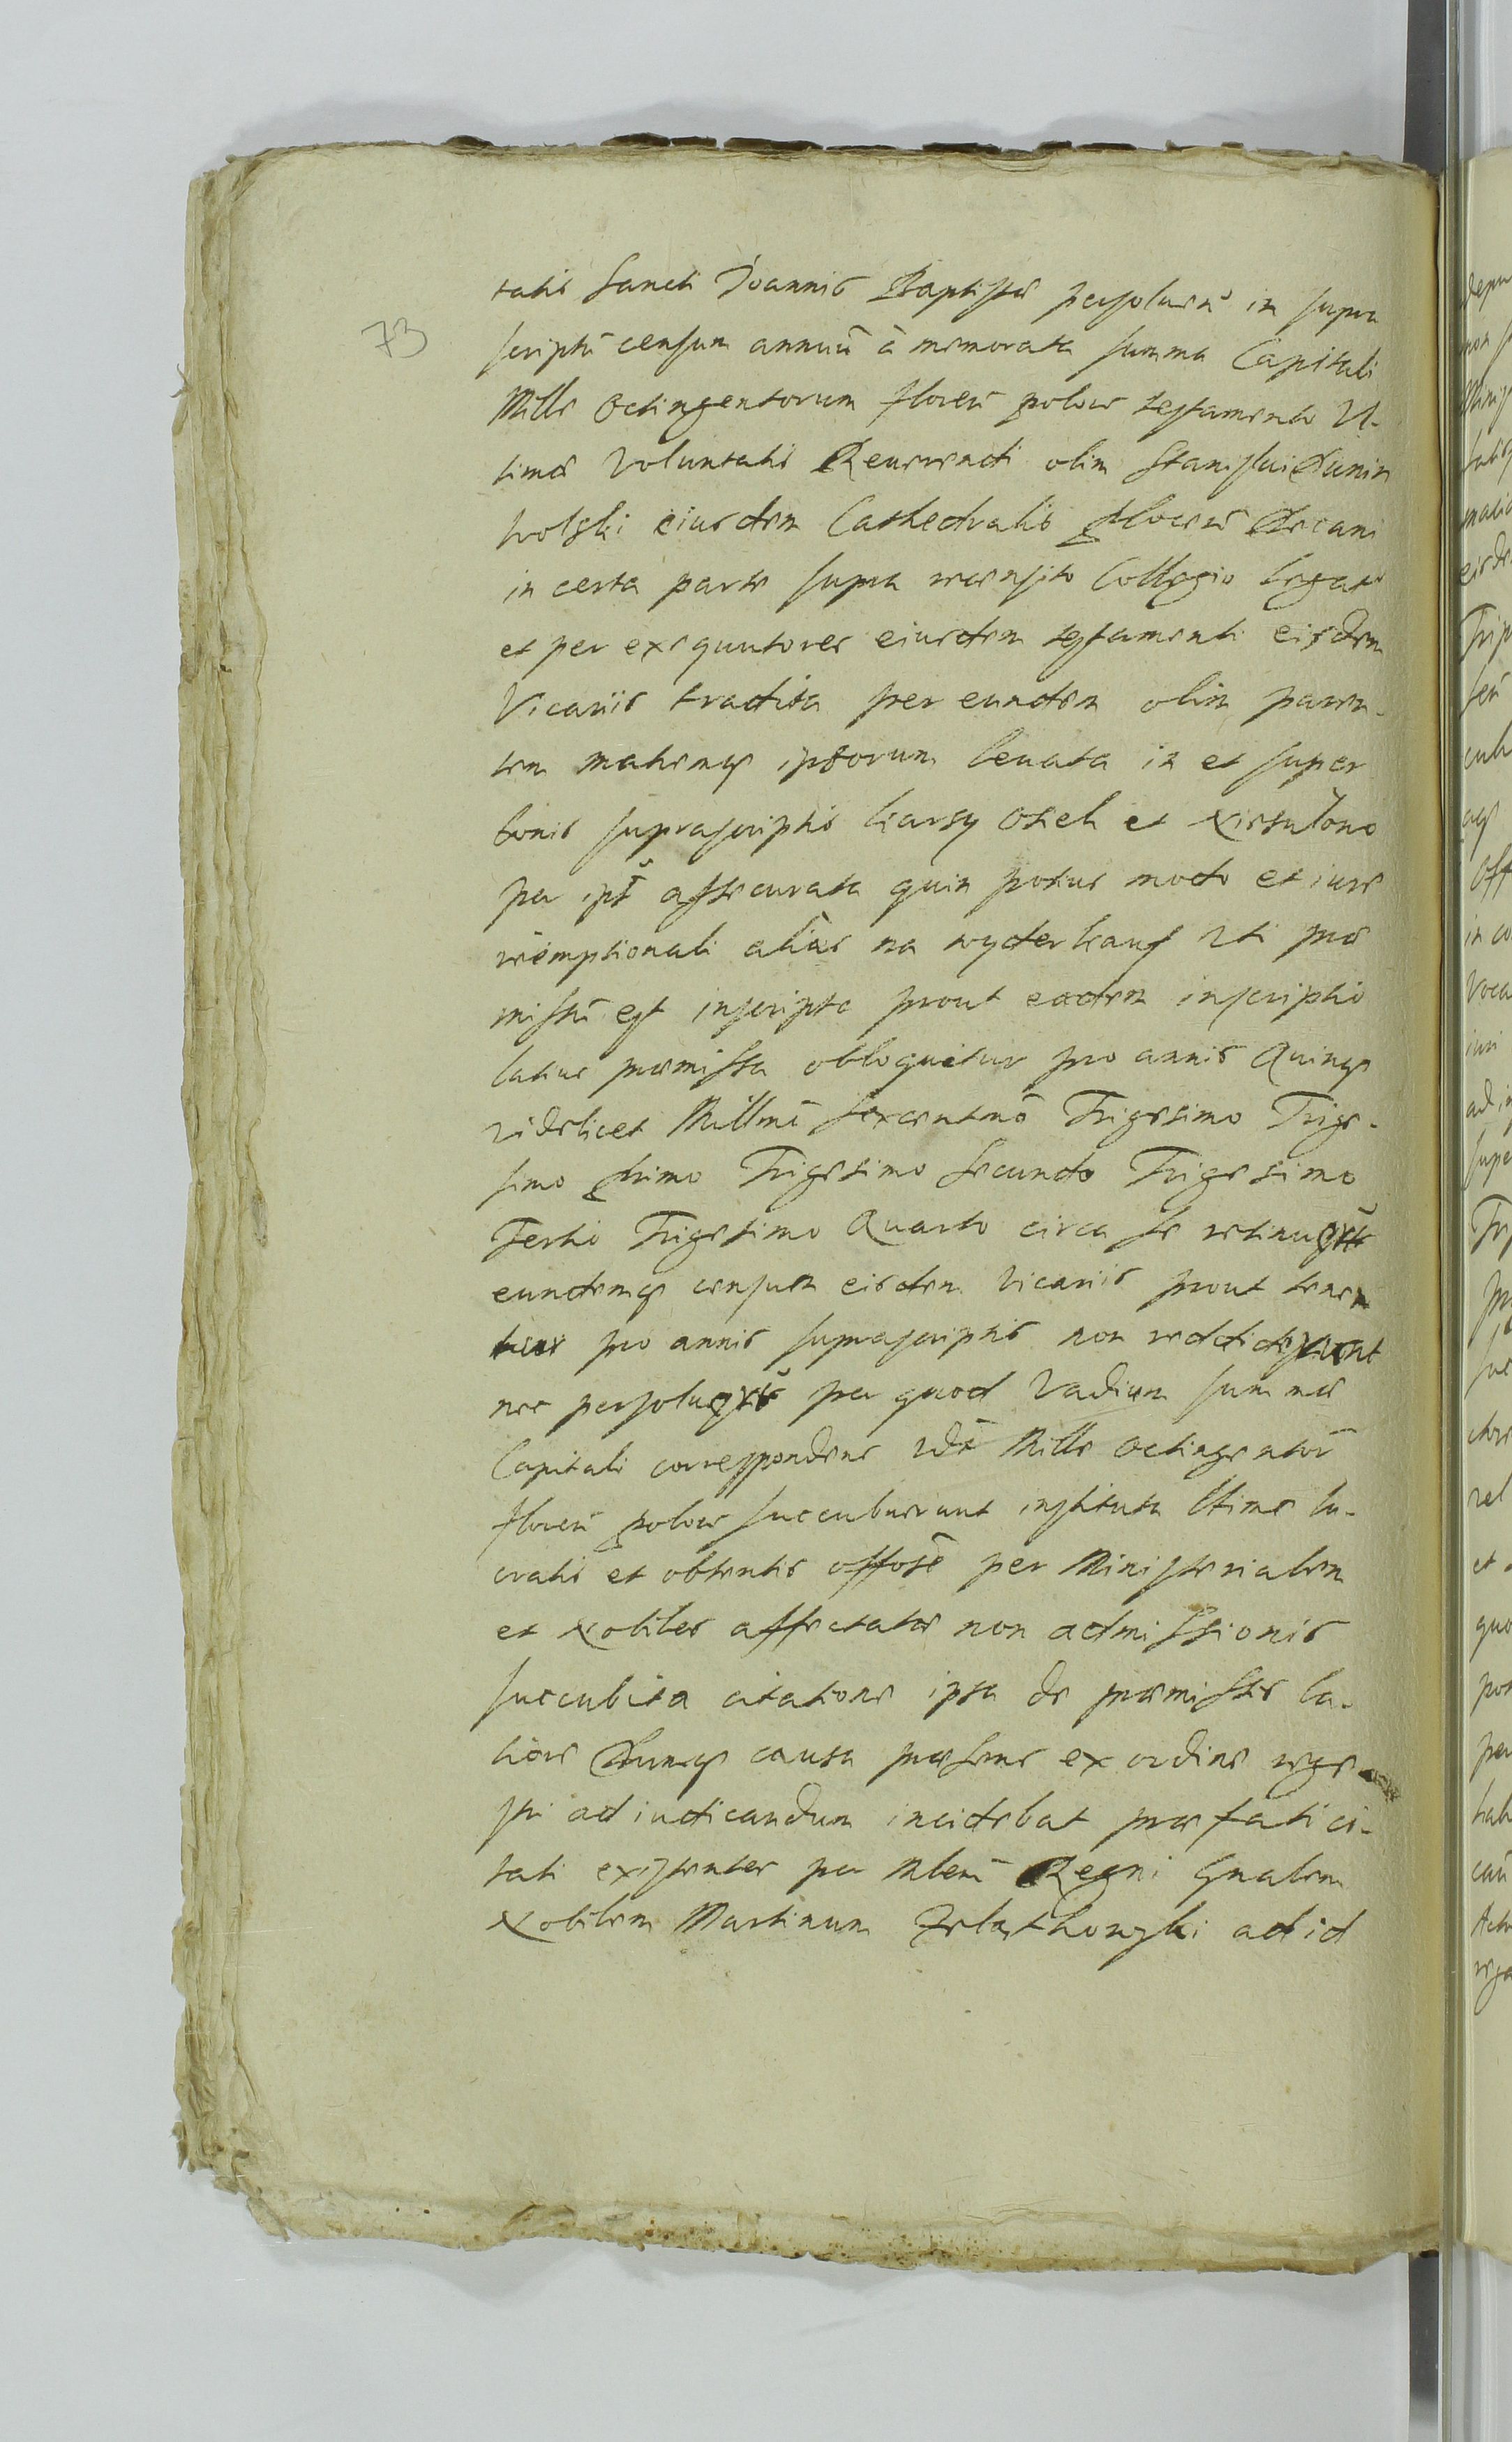 73
tatis Sancti Joannis Baptistæ persoluen̄ in supra
scriptū censum annuū à memorata summa Capitali
Mille Octingentorum floren̄ polon testamento Vl-
timæ Voluntatis Reuerendi olim Stanislai Dunin
Wolski eiusdem Cathedralis Plocen̄ Decani
in certa parte supra recensito Collegio legat
et per exequutores eiusdem testamenti eisdem
Vicariis tradita per eundem olim paren-
tem matremq ipsorum leuata in et super
bonis suprascriptis Karsy Osiek et
per ips̄ assecurata quin potius modo et iure
reemptionali aliàs na wyderkauf Vti præ
missū est inscripta prout eadem inscriptio
latius præmissa obloquitur pro annis Quinq
videlicet Millmō Sexcentmō Trigesimo Trige-
simo Primo Trigesimo Secundo Trigesimo
Tertio Trigesimo Quarto circa se retinu
eundemq censum eisdem Vicariis prout tenen
pro annis suprascriptis non reddiderunt
nec persolu per quod Vadium summæ
Capitali correspondens vdt Mille Octingentor̄
floren̄ polon succubuerunt instituta ltime lu-
cratis et obtentis offose per Ministerialem
et Nobiles affectatæ non admissionis
succubita citatione ipsa de præmissis la-
tiore Dumq causa præsens ex ordine rege-
stri ad iudicandum incidebat præfati ci-
tati existentes per Mlem̄ Regni Gnalem
Nobilem Martinum Zelasthowski ad id